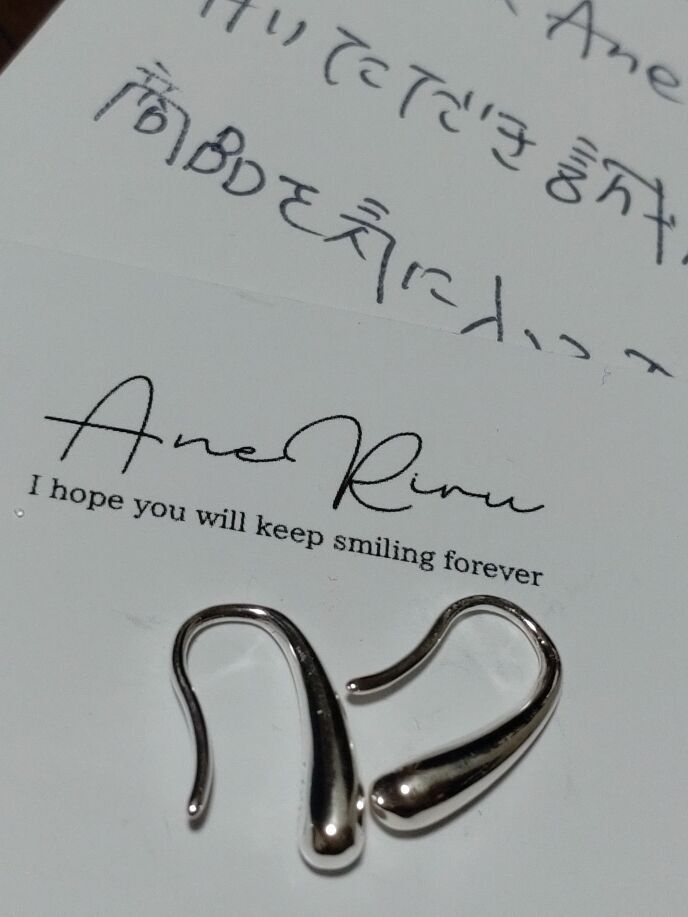 Ane
いただき誠に
商品を気に入って
AneRiru
I hope you will keep smiling forever